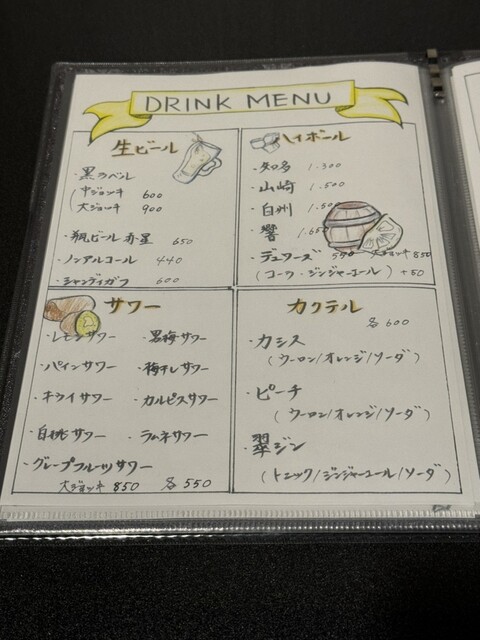 DRINK MENU
生ビール
・黒ラベル
中ジョッキ 600
大ジョッキ 900
・瓶ビール 赤星 650
・ノンアルコール 440
・シャンディガフ 600
ハイボール
・知多 1.300
・山崎 1.500
・白州 1.50
・響 1.650
・デュワーズ 550 大ジョッキ 850
(コーク・ジンジャーエール) +50
サワー
・レモンサワー ・黒梅サワー
・パインサワー ・梅干しサワー
・キウイサワー ・カルピスサワー
・白桃サワー ・ラムネサワー
・グレープフルーツサワー
大ジョッキ 850 各 550
カクテル
各 600
・カシス
(ウーロン/オレンジ/ソーダ)
・ピーチ
(ウーロン/オレンジ/ソーダ)
・翠ジン
(トニック/ジンジャーエール/ソーダ)